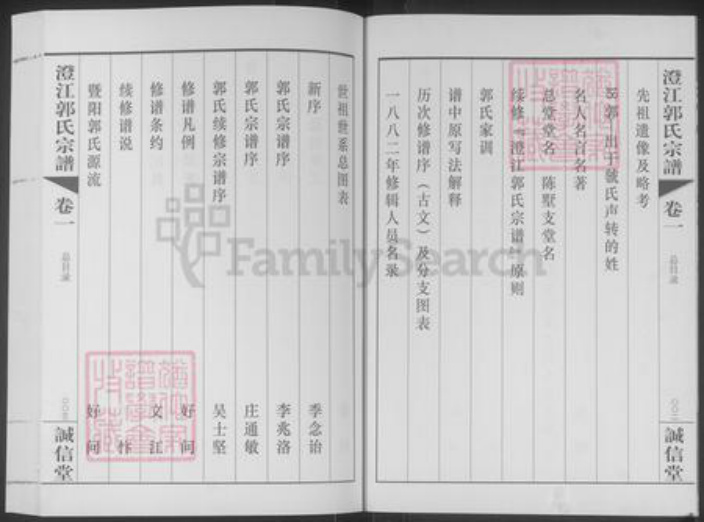 澄江郭氏宗譜
卷一
总目录
〇〇二
誠信堂
先祖遗像及略考
郭—出于虢氏声转的姓
名人名言名著
总堂堂名 陈墅支堂名
续修《澄江郭氏宗谱》原则
郭氏家训
谱中原写法解释
历次修谱序（古文）及分支图表
一八八二年修辑人员名录
世祖世系总图表
新序 季念诒
郭氏宗谱序 李兆洛
郭氏宗谱序 庄通敏
郭氏续修宗谱序 吴士坚
修谱凡例 好问
修谱条约 文江
续修谱说
暨阳郭氏源流 好问
澄江郭氏宗譜
卷一
总目录
誠信堂
FamilySearch